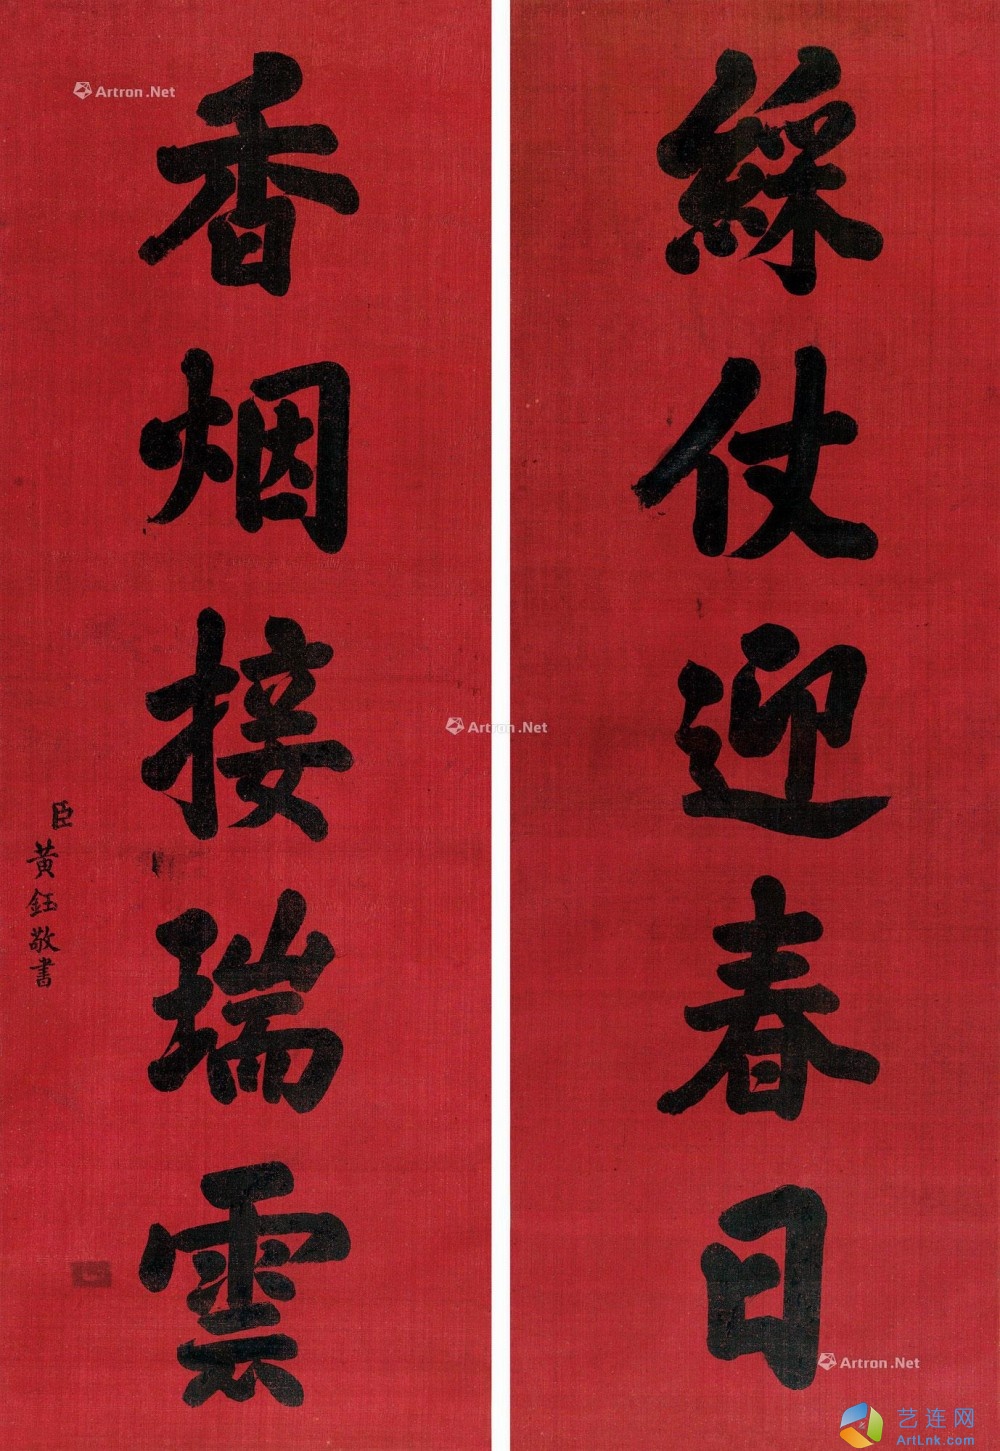 綵仗迎春日
香烟接瑞雲
臣黃鈺敬書
Artron.Net
Artron.Net
Artron.Net
艺连网
ArtLnk.com